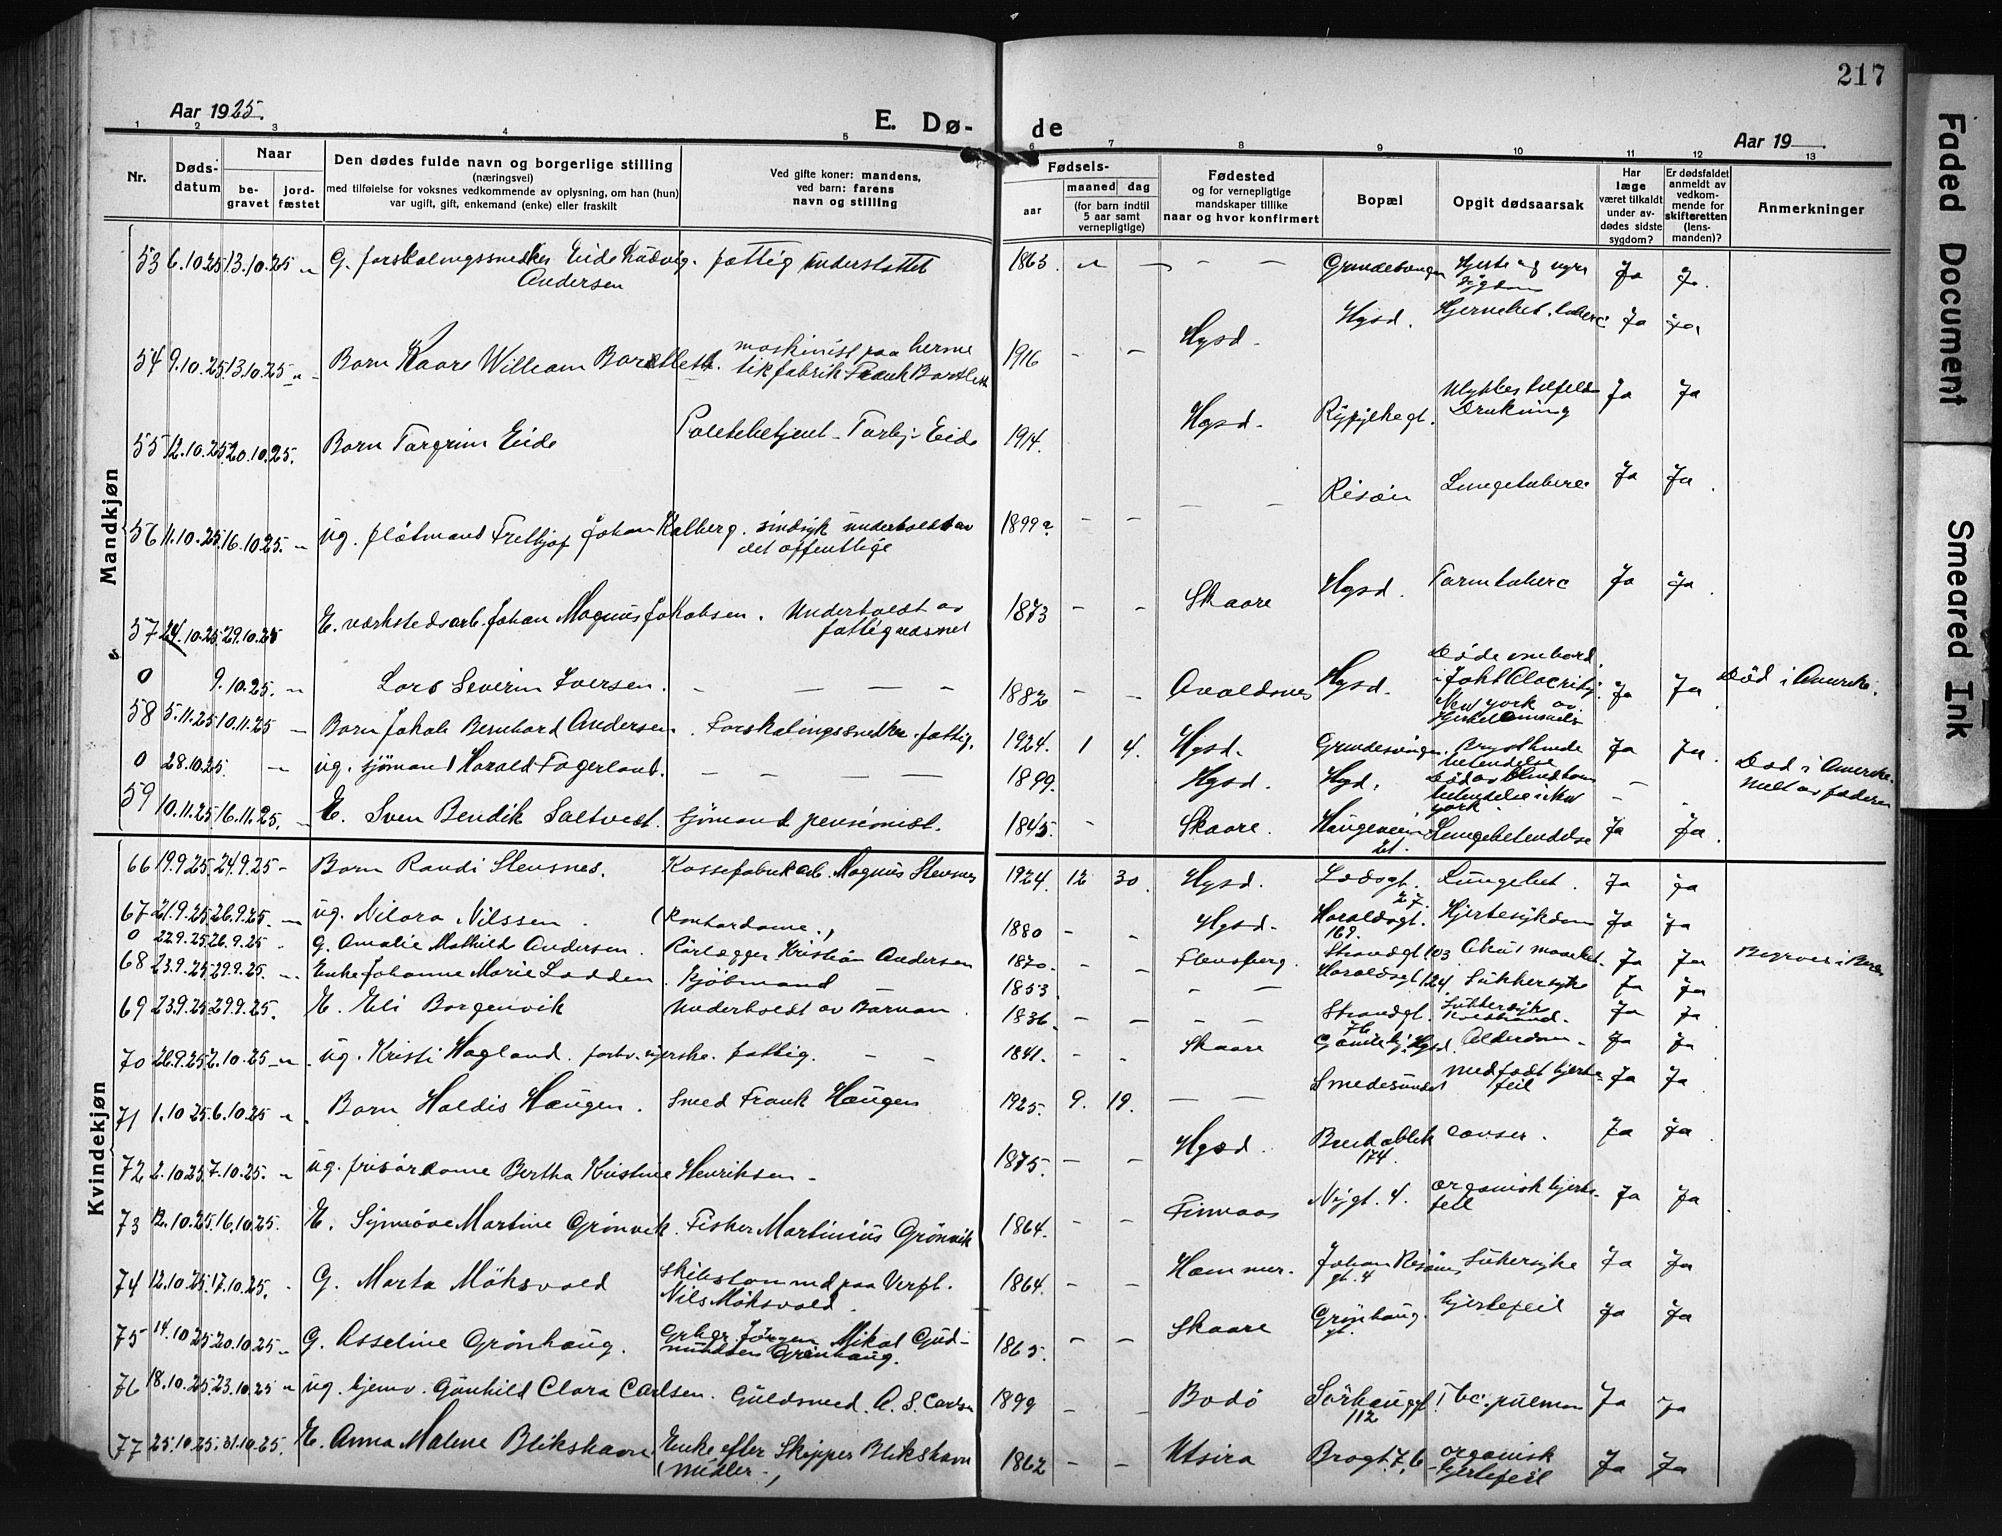 217
Aar 1925.
E. Dø-
de
Aar 19
1 2 3 4 5 6 7 8 9 10 11 12 13
Nr.
Døds-
datum
Naar
be-
gravet
jord-
fæstet
Den dødes fulde navn og borgerlige stilling
(næringsvei)
med tilføielse for voksnes vedkommende av oplysning, om han (hun)
var ugift, gift, enkemand (enke) eller fraskilt
Ved gifte koner: mandens,
ved barn: farens
navn og stilling
Fødsels-
aar
maaned dag
(for barn indtil
5 aar samt
vernepligtige)
Fødested
og for vernepligtige
mandskaper tillike
naar og hvor konfirmert
Bopæl
Opgit dødsaarsak
Har
læge
været tilkaldt
under av-
dødes sidste
sygdom?
Er dødsfaldet
anmeldt av
vedkom-
mende for
skifteretten
(lens-
manden)?
Anmerkninger
Mandkjøn
53 6.10.25 13.10.25 G. forskalingssnedker Eide Ludvig Andersen fattig understøttet 1863 Ja Ja
54 9.10.25 13.10.25 Barn Kaare William Bartlett. maskinist paa hermetikfabrik Frank Bartlett 1916 Hgsd. Hgsd. Ja Ja
55 12.10.25 20.10.25. Barn Torgrim Eide Politibetjent Torbj. Eide 1914. Hgsd. Ulykkestilfelde Drukning Ja Ja
56 11.10.25 16.10.25. ug. Fritjof Johan Kalberg. sindsyk underholdt av det offentlige 1899 Risøen Lungetuberc Ja Ja
57 24.10.25 29.10.25 E. værkstedsarb. Johan Magnus Jakobsen. Underholdt av fattigvæsnet 1873 Skaare Hgsd. Tarmtuberc Ja Ja
0 9.10.25. Lars Severin Iversen. 1882 Avaldsnes Hgsd. Døde ombord i New York av Ja Ja Død i Amerika.
58 5.11.25 10.11.25 Barn Jakob Bernhard Andersen. Forskalingssnedker. fattig. 1924. 1 4. Hgsd. Brysthindebetendelse Ja Ja
0 28.10.25. ug. sjømand Harald Fagerland. 1899. Hgsd. Hgsd. Død av Blindtarmbetendelse i New York. Død i Amerika. Melt av faderen
59 10.11.25 16.11.25. E. Sven Bendik Saltvedt. sjømand pensionist. 1845. Skaare. Haugeveien 21. Lungebetendelse Ja Ja
Kvindekjøn
66 19.9.25 24.9.25 Barn Randi Stensnes. Kassefabrikarb. Magnus Stensnes 1924. 12 30. Hgsd. 27. Lungebet. Ja Ja
67 21.9.25 26.9.25. ug. Nilora Nilssen. (Kontordame.) 1880 Hgsd. Haraldsgt. 169. Hjertesykdom Ja Ja
0 22.9.25 26.9.25. G. Amalie Mathild Andersen. Rørlægger Kristian Andersen 1870. Flensberg. Strandgt 103 Ja Ja
68 23.9.25 29.9.25. Enke Johanne Marie Lodden. Kjøbmand 1853. Haraldsgt 124. Sukkersyke Ja Ja
69 23.9.25 29.9.25. E. Eli Borgenvik Underholdt av Barnan. 1836. Strandgt. 76 Sukkersyk Koldbrand. Ja Ja
70 26.9.25 2.10.25 ug. Kristi Hagland. fattig. 1841. Skaare Hgsd. Alderdom. Ja Ja
71 1.10.25 6.10.25 Barn Haldis Haugen. Smed Frank Haugen 1925. 9. 19. Smedesundet medfødt hjertefeil Ja Ja
72 2.10.25 7.10.25. ug. frisørdame Bertha Kristine Henriksen. 1875. Hgsd. Breidablik 174. cancer. Ja Ja
73 12.10.25. 16.10.25. E. Synnøve Martine Grønvik. Fisker Martinius Grønvik 1864. Finnaas Nygt. 4. organisk hjertefeil Ja Ja
74 12.10.25. 17.10.25. G. Marta Måksvold Skibstømmermand paa Verft. Nils Måksvold. 1864. Hammer. gt. 4 Sukersyke Ja Ja
75 14.10.25 20.10.25 G. Asseline Grønhaug. Jørgen Mikal Gudmundsen Grønhaug. 1865. Skaare Grønhaug gt. hjertefeil Ja Ja
76 18.10.25 23.10.25 ug. hjemv. Gunhild Clara Carlsen. Guldsmed. A. S. Carlsen 1899 Bodø Sørhauggt 112 Tbc. pulmon Ja Ja
77 25.10.25. 31.10.25. E. Anna Malene Blikshavn. Enke efter Skipper Blikshavn (Midler.) 1862 Utsira organisk hjertefeil Ja Ja
Faded Document
Smeared Ink